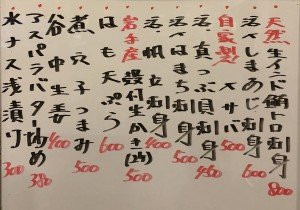 天然 生インド鮪トロ刺身 800
活〆しまあじ刺身 500
自家製 〆サバ 500
活 真つぶ貝刺身 450
活〆はまち刺身 500
活 帆立刺身 400
岩手産 殻付生かき(2ヶ) 500
はも天ぷら 600
煮穴子つまみ 500
谷中生姜 400
アスパラバター炒め 380
水ナス浅漬り 300